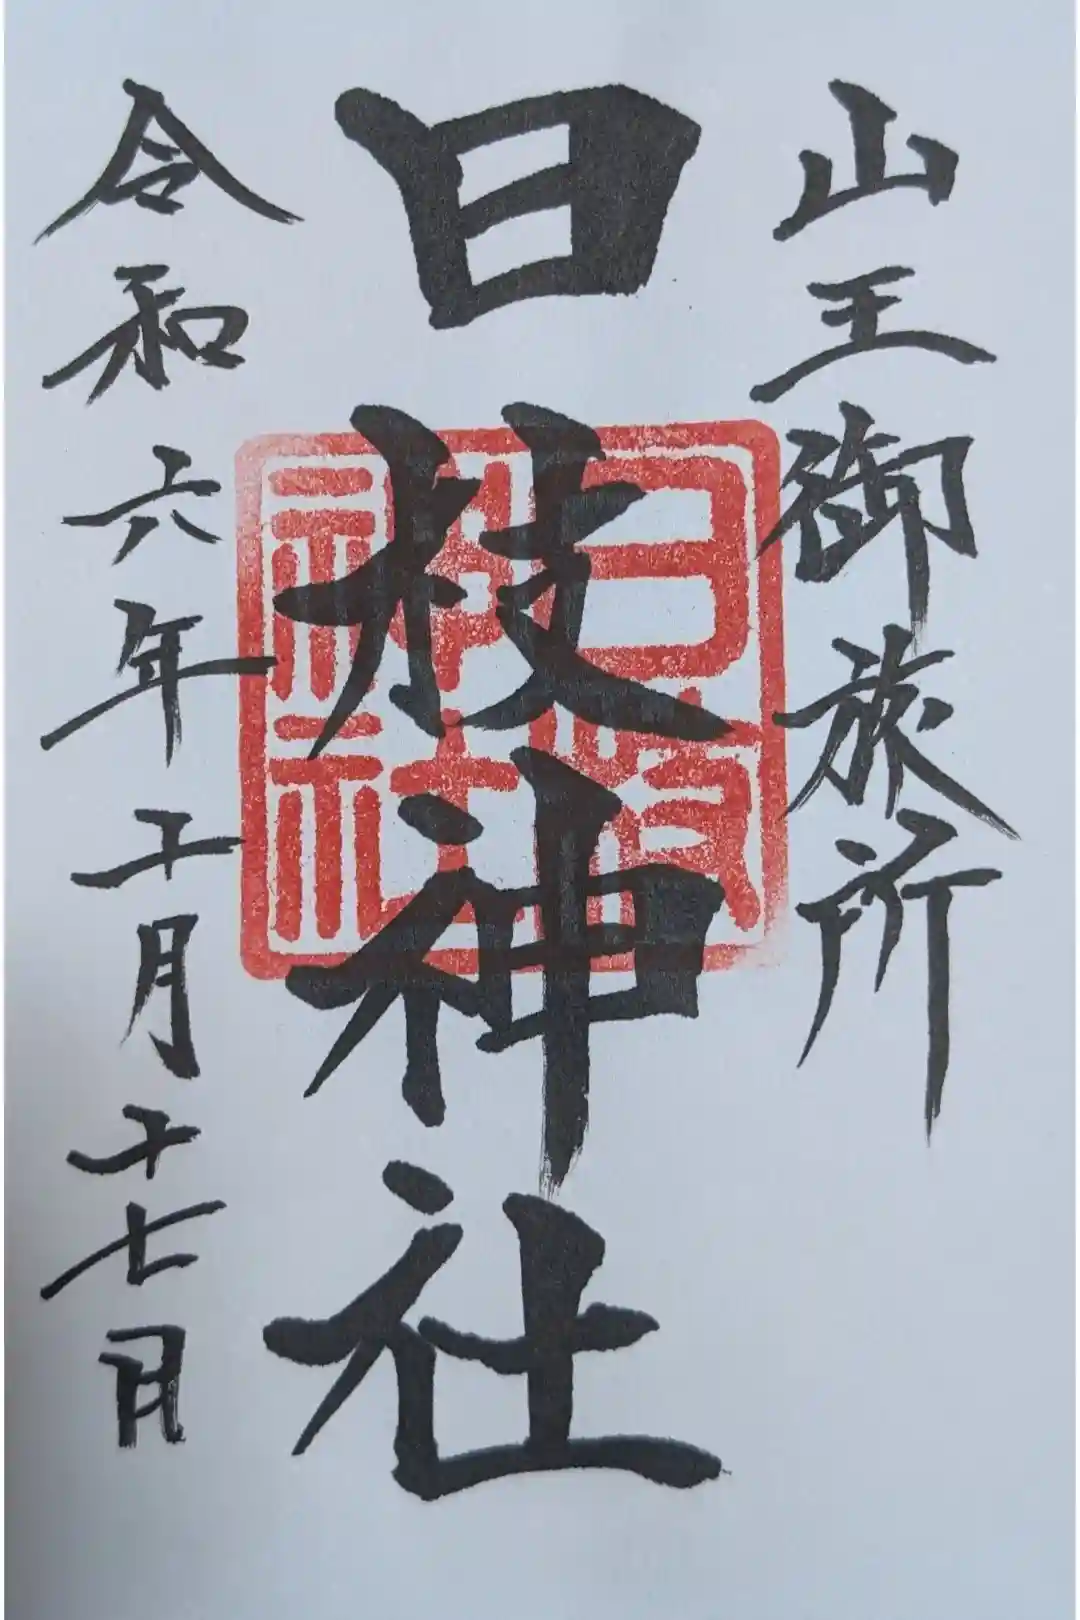 山王御旅所
日枝神社
日枝
神社
令和六年十一月十七日